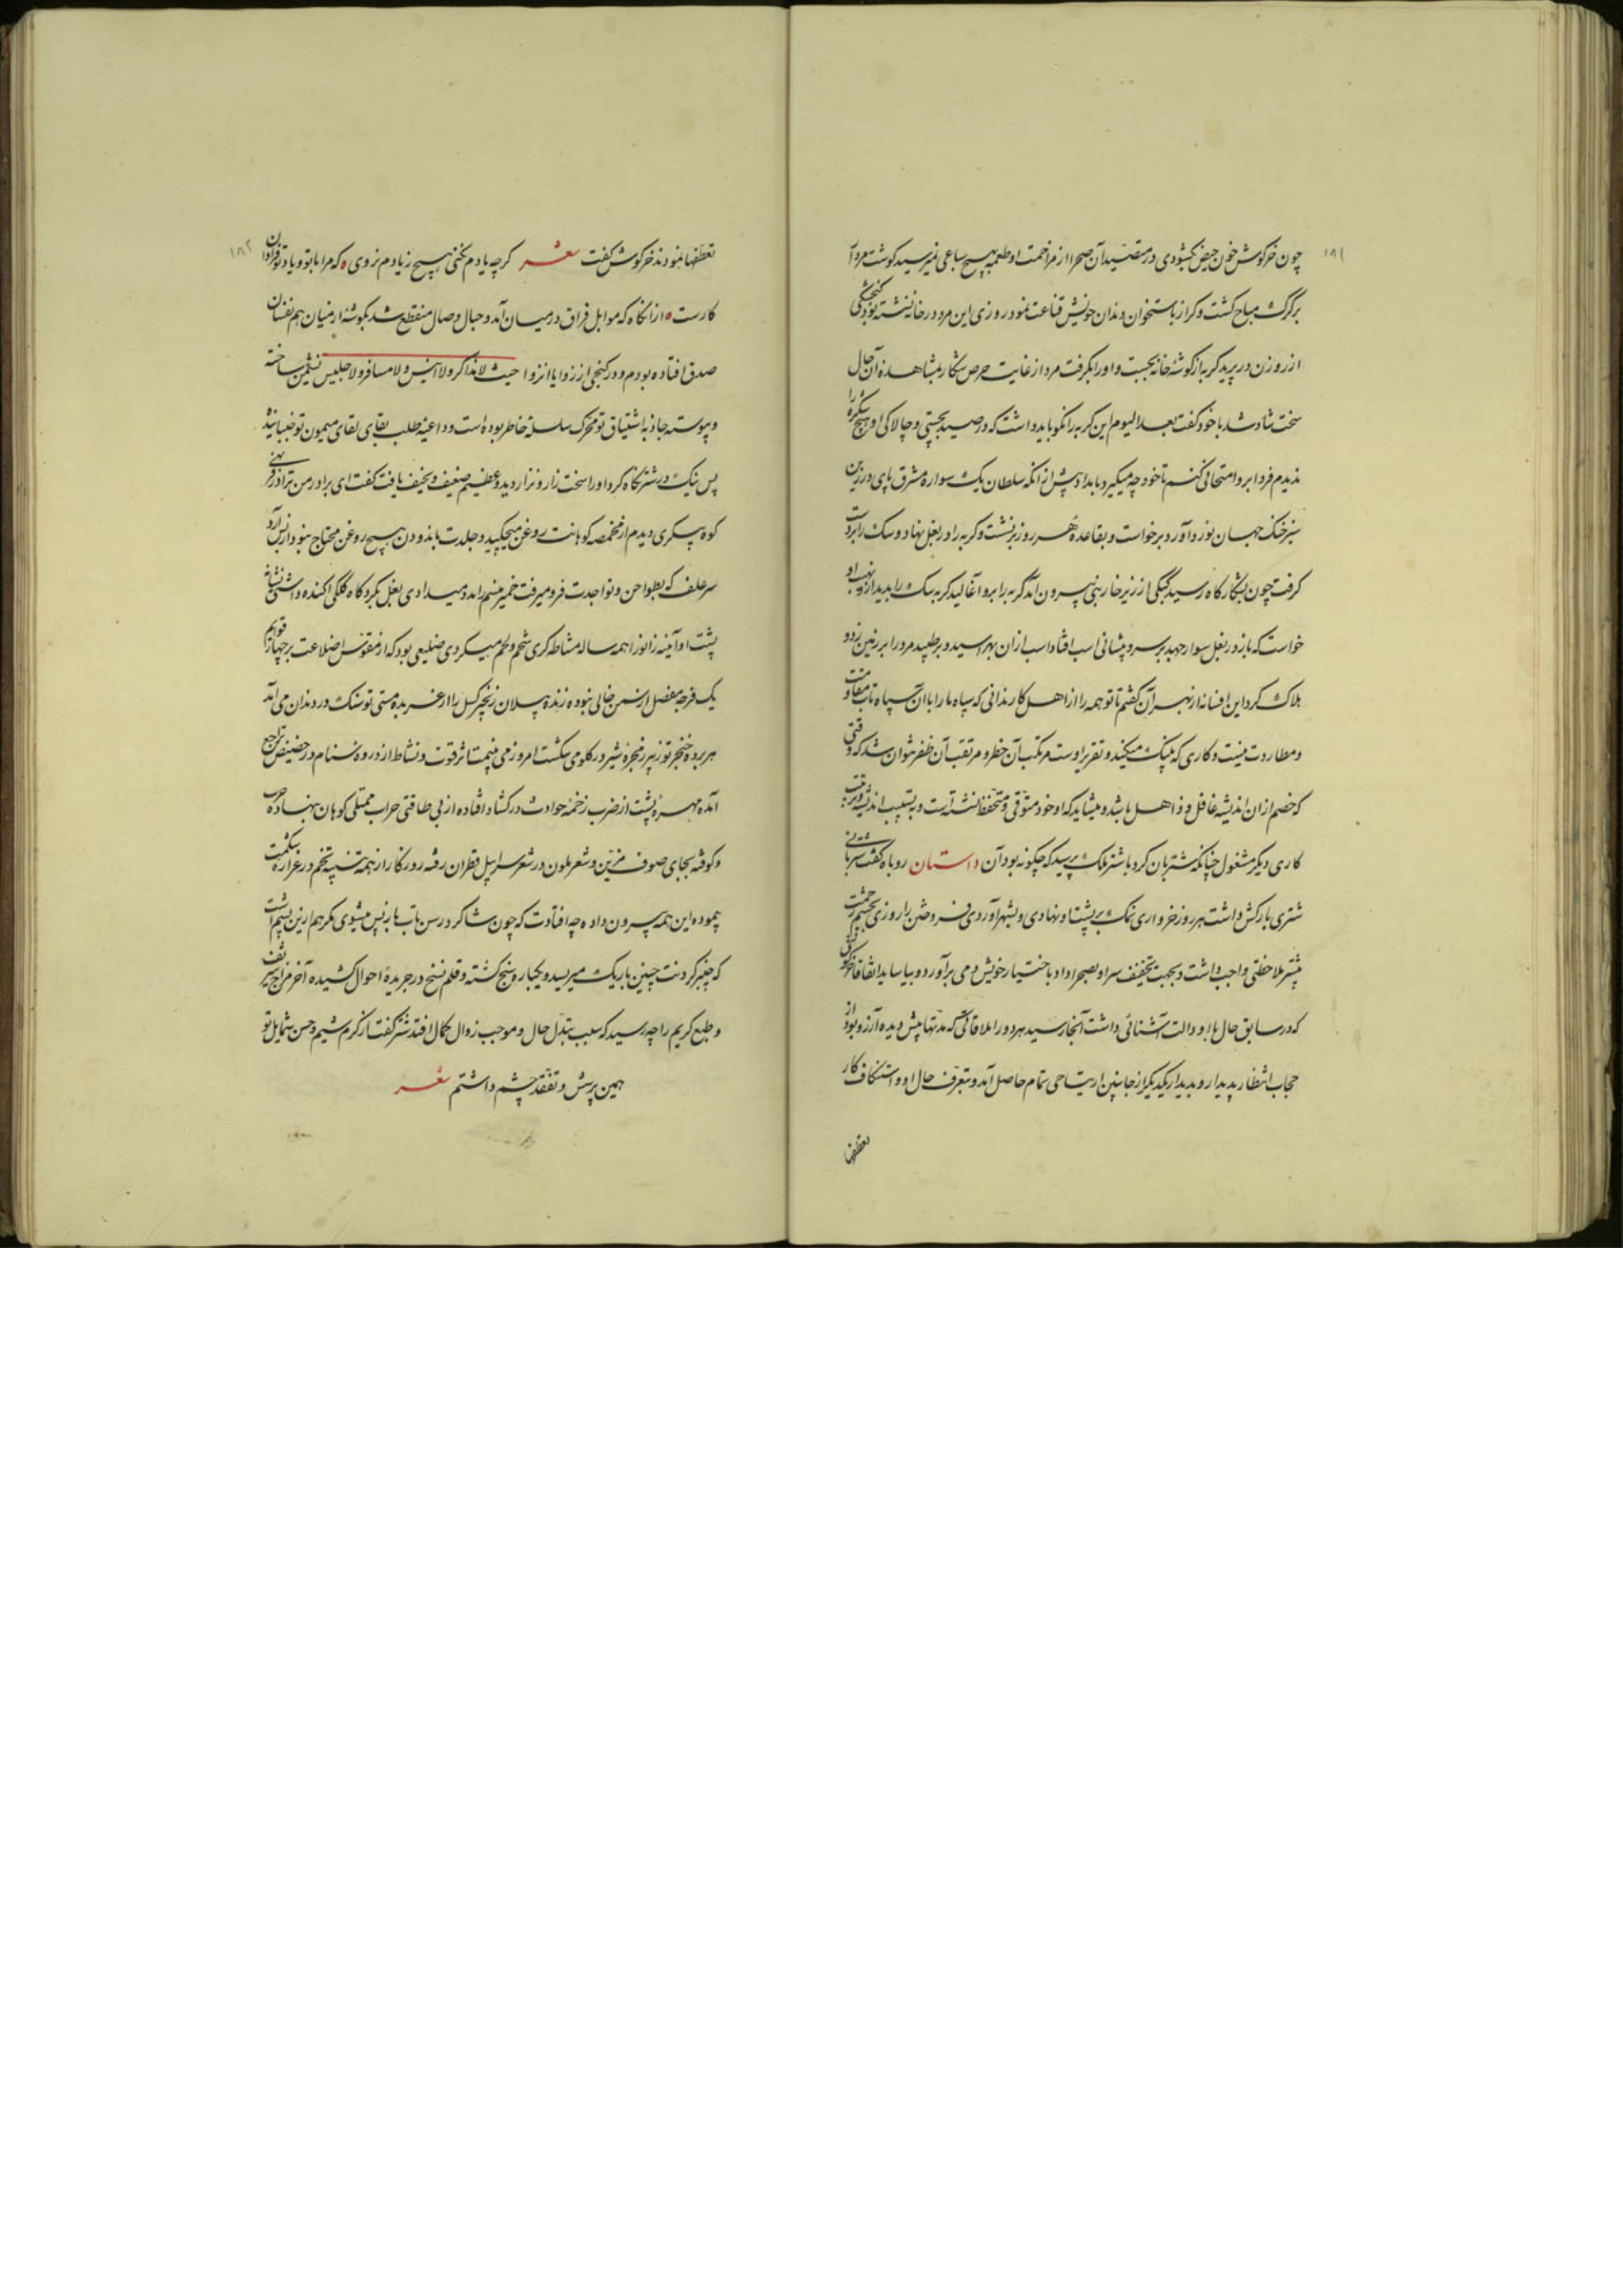 ۱۸۱
چون خرگوش خون حیض بگشودی در متصید آن صحرا از مزاحمت او طعمه بهیچ سباعی نمیرسید گوشت مردار
برگرگ مباح گشت و گراز باستخوان دندان خویش قناعت نمود روزی این مرد در خانه نشسته بود گنجشکی
از روزن در پرید گربه از گوشهٔ خانه بجست و او را بگرفت مرد از غایت حرص شکار بمشاهده آن حال
سخت شاد شد با خود گفت بعد الیوم این گربه را نکو باید داشت که در صید بچستی و چالاکی او هیچ شکره را
ندیدم فردا برو امتحانی کنم تا خود چه میگیرد بامداد پیش از آنکه سلطان یک سواره مشرق پای در زین
سبز خنک جهان نورد آورد برخواست و بقاعدهٔ هر روز برنشست و گربه را در بغل نهاد و سک را بردست
گرفت چون بشکارگاه رسید کبکی از زیر خاربنی بیرون آمد گربه را برو آغالید گربه سک را بدید از نهیب او
خواست که باز در بغل سوار جهد بر سر و پیشانی اسب افتاد اسب از آن بهراسید و بر طپید مرد را بر زمین زد و
هلاک کرد این افسانه از بهر آن گفتم تا تو همه را از اهل کار ندانی که سپاه ما را با آن سپاه تاب مقاومت
و مطاردت نیست و کاری که پلنگ میکند و تقریر اوست مرتکب آن خطر و مرتقب آن ظفر نتوان شد که وقتی
که خصم از آن اندیشه غافل و ذاهل باشد و میشاید که او خود متوقی و متحفظ نشسته است و بتسبیب اندیشه و ترتیب
کاری دیگر مشغول چنانکه شتربان کرد با شتر ملک پرسید که چگونه بود آن داستان روباه گفت شتربانی
شتری بارکش داشت هر روز خرواری نمک بر پشت او نهادی و بشهر آوردی فروختن را روزی بچشم رحمت
شتر ملاحظتی واجب داشت و بجهت تخفیف سر او بصحرا داد تا باختیار خویش دمی برآورد و بیاساید اتفاقا خرگوشی
که در سابق حال با او دالت آشنائی داشت آنجا رسید هر دو را ملاقاتی که مدتها پیش دیده آرزو بود از
حجاب انتظار پدیدار و بدیدار یکدیگر از جانبین ارتیاحی تمام حاصل آمد و بتعرف حال او و استکشاف کار
تعطفها
۱۸۲
تعطفها نمودند خرگوش گفت شعر گرچه یادم نکنی هیچ ز یادم نروی ه که مرا با تو و یاد تو فراوان
کارست ه از آنگاه که موابل فراق در میان آمد و حبال وصال منقطع شد بگوشهٔ از میان هم نفسان
صدق افتاده بودم و در کنجی از زوایا انزوا حیث لا مذاکر و لا انیس و لا مسافر و لا جلیس نشیمن ساخته
و پیوسته جاذبه اشتیاق تو محرک سلسلهٔ خاطر بوده است و داعیهٔ طلب بقای لقای میمون تو جنبانیده
پس نیک در شتر نگاه کرد او را سخت زار و نزار دید و عظیم ضعیف و نحیف یافت گفت ای برادر من ترا در فربهی
کوه پیکری دیدم از مخمصه کوهانت روغن میچکید و جلدت باندودن هیچ روغن محتاج نبود از بس آرد
سر علف که بطواحن و نواجدت فرو میرفت خمیر منسم را مدد میداد ی بغل بگرد کاه گلگی اکنده داشتی شانه
پشت او آینهٔ زانو را همه ساله مشاطه گری شحم و لحم میکردی ضلیعی بود که از مقوس اضلاعت بر چهار قوایم
یک فرجهٔ مفصل از سمن خالی نبوده زنده پیلان زنجیر گسل را از عربدهٔ مستی تو سنک در دندان می آمد
هربر ده خنجر تو زیر زنجرهٔ شیر در گلو می شکست امروز می بینمت اثر قوت و نشاط از ذروهٔ سنام در حضیض تراجع
آمده مهرهٔ پشت از ضرب زخمهٔ حوادث در گشاد افتاده از بی طاقتی جراب ممتلی کوهان بنهاده جرب
و کوفته بجای صوف مزین و شعر ملون در شعر سرابیل قطران رفته روزگار از همه تنت پنبه تخم در غراره شکمت
پیموده این همه بیرون داده چه افتادت که چون شاگرد رسن تاب باز پس میشوی مگر هم از این پشم است
که چنبر گردنت چنین باریک میریسد و یکباره مسخ گشته و قلم نسخ در جریدهٔ احوال کشیده آخر مزاج شریف
و طبع کریم را چه رسید که سبب تبدل حال و موجب زوال کمال افتد شتر گفت از کرم شیم و حسن شمایل تو
همین پرسش و تفقد چشم داشتم شعر